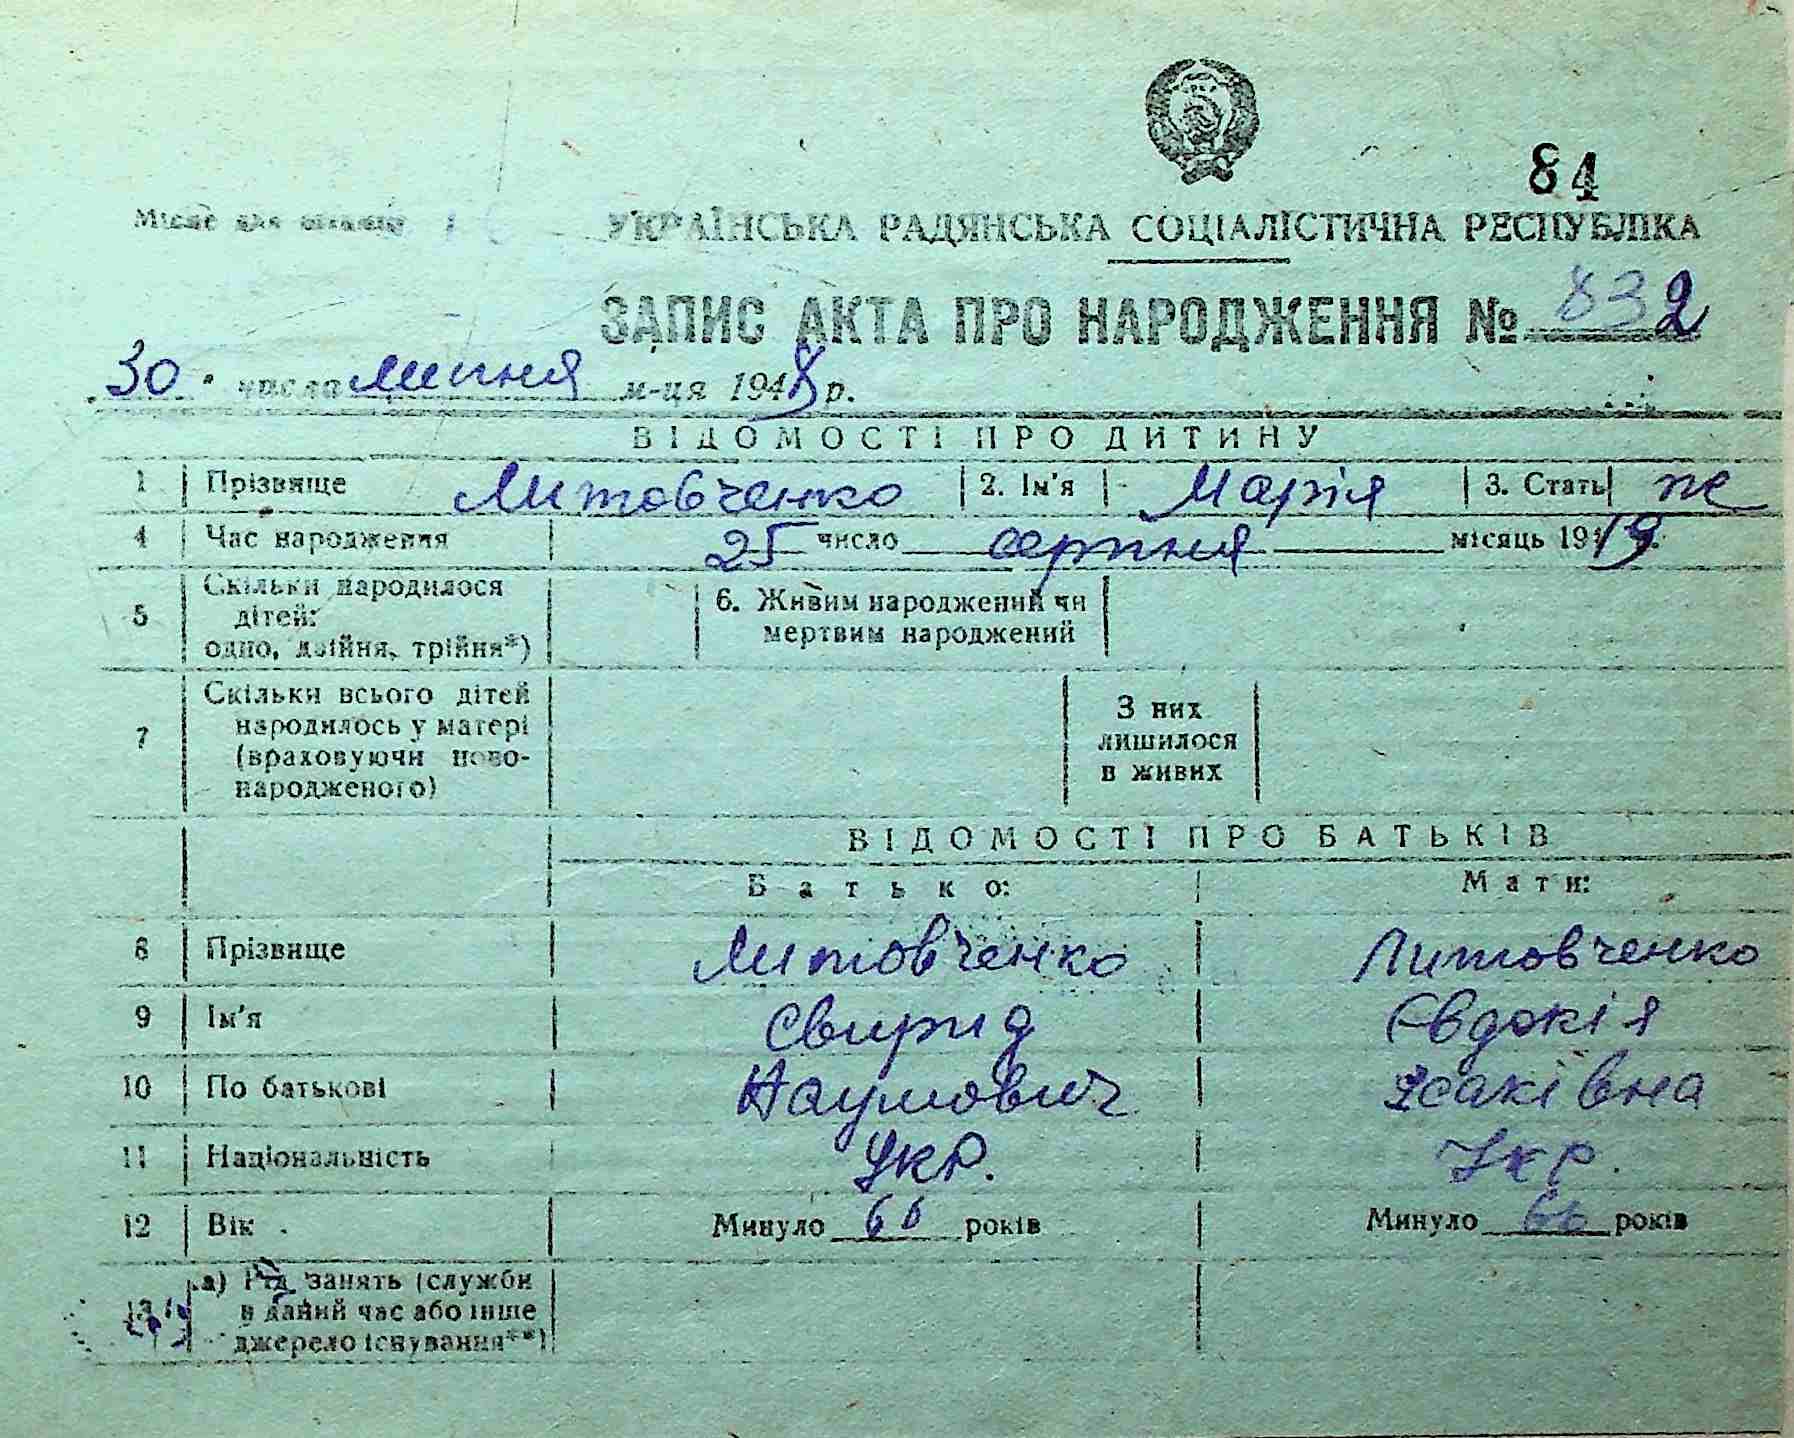 84
Місце для штампу УКРАЇНСЬКА РАДЯНСЬКА СОЦІАЛІСТИЧНА РЕСПУБЛІКА
ЗАПИС АКТА ПРО НАРОДЖЕННЯ № 832
30 числа липня м-ця 1948 р.
ВІДОМОСТІ ПРО ДИТИНУ
1 Прізвище Литовченко 2. Ім'я Марія 3. Стать ж
4 Час народження 25 число серпня місяць 1919.
5 Скільки народилося дітей: одно, двійня, трійня*) 6. Живим народжений чи мертвим народжений
7 Скільки всього дітей народилось у матері (враховуючи ново-народженого) З них лишилося в живих
ВІДОМОСТІ ПРО БАТЬКІВ
Батько: Мати:
8 Прізвище Литовченко Литовченко
9 Ім'я Свирид Євдокія
10 По батькові Наумович Ісаківна
11 Національність Укр. Укр.
12 Вік Минуло 66 років Минуло 66 років
13 а) Рід занять (служби в даний час або інше джерело існування**)